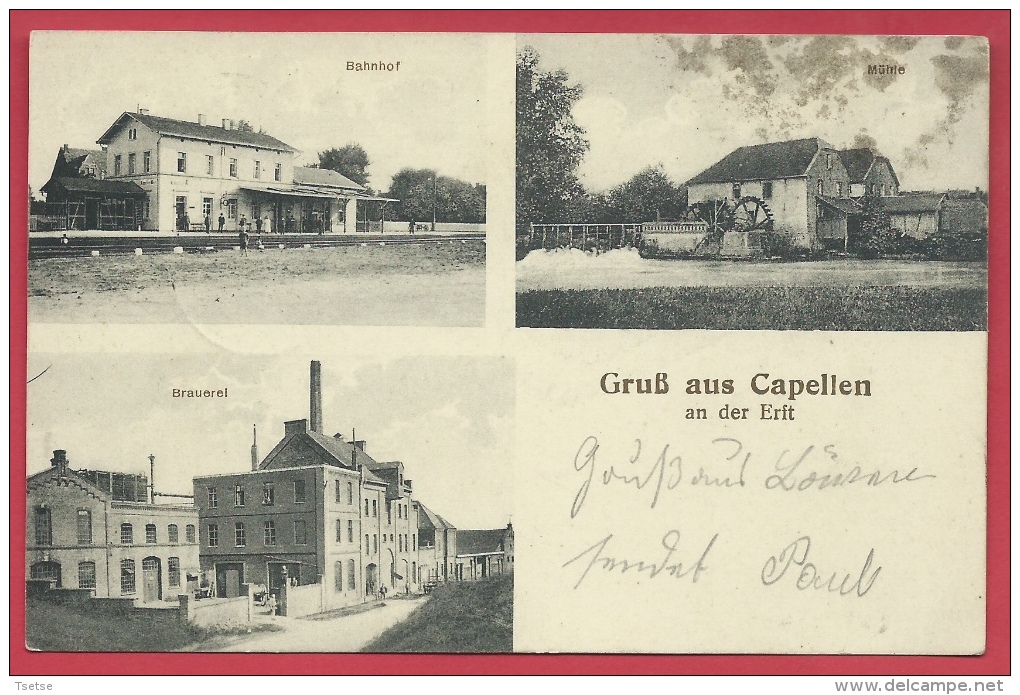 Bahnhof
Mühle
Brauerei
Gruß aus Capellen
an der Erft
Gruß aus Löwen
sendet Paul
Tsetse
www.delcampe.net